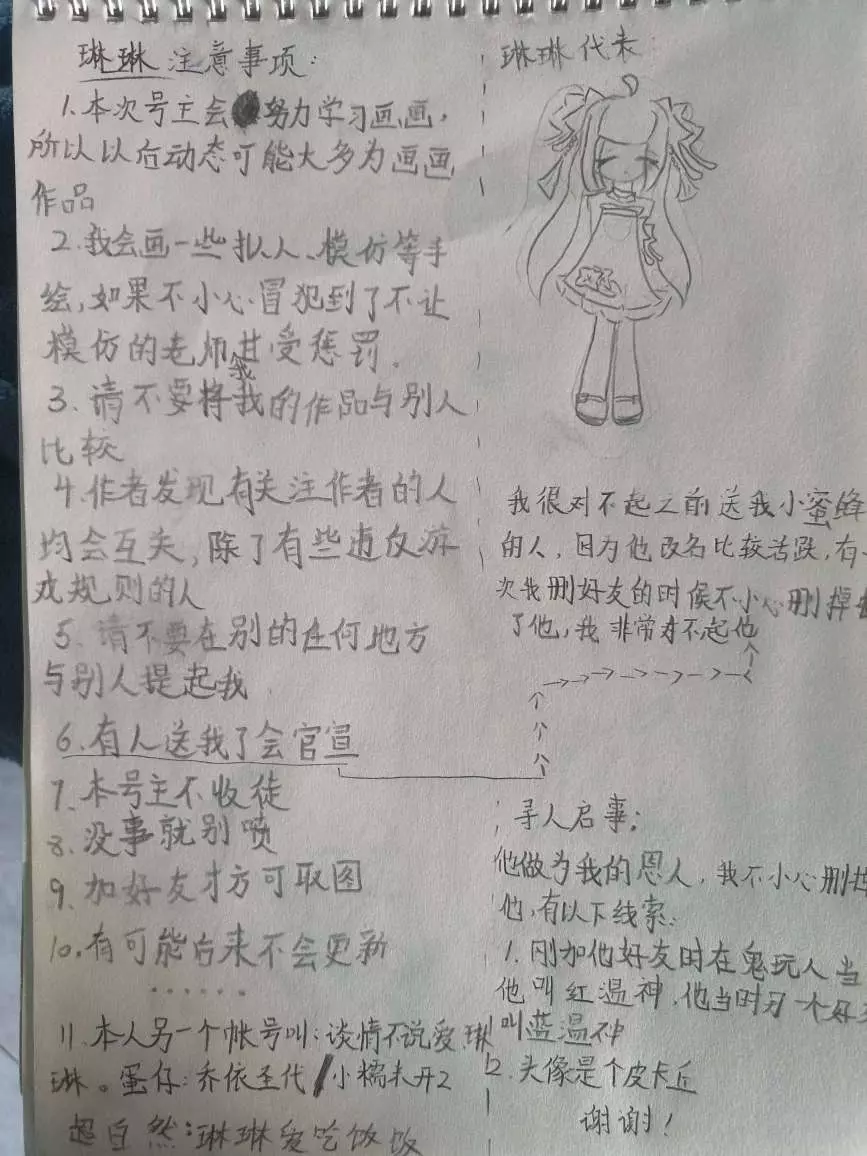 琳琳注意事项：
1.本次号主会努力学习画画，
所以以后动态可能大多为画画
作品
2.我会画一些拟人、模仿等手
绘，如果不小心冒犯到了不让
模仿的老师我甘受惩罚.
3、请不要将我的作品与别人
比较
4.作者发现有关注作者的人
均会互关，除了有些违反游
戏规则的人
5、请不要在别的任何地方
与别人提起我
6.有人送我了会官宣
7、本号主不收徒
8、没事就别喷
9、加好友才方可取图
10.有可能后来不会更新
......
11.本人另一个帐号叫：谈情不说爱.琳
琳。蛋仔：乔依圣代/小糯未开2
超自然：琳琳爱吃饭饭
琳琳代表：
我很对不起之前送我小蜜蜂
的人，因为他改名比较活跃，有一
次我删好友的时候不小心删掉
了他，我非常对不起他
寻人启事：
他做为我的恩人，我不小心删
他，有以下线索：
1.刚加他好友时在鬼玩人当
他叫红温神，他当时另一个好
叫蓝温神
2.头像是个皮卡丘
谢谢！